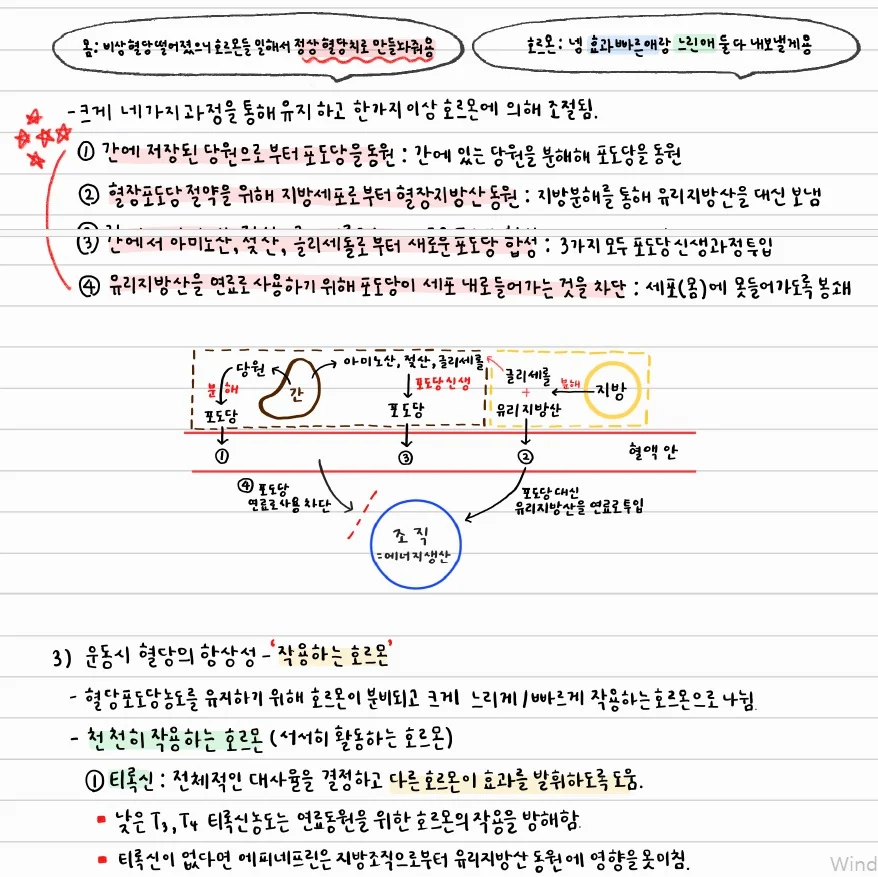 몸 : 비상 혈당 떨어졌으니 호르몬들 일해서 정상 혈당치로 만들놔줘용
호르몬 : 넹 효과 빠른 애랑 느린 애 둘 다 내보낼게용
- 크게 네가지 과정을 통해 유지하고 한가지 이상 호르몬에 의해 조절됨.
① 간에 저장된 당원으로부터 포도당을 동원 : 간에 있는 당원을 분해해 포도당을 동원
② 혈장포도당 절약을 위해 지방세포로부터 혈장지방산 동원 : 지방분해를 통해 유리지방산을 대신 보냄
③ 간에서 아미노산, 젖산, 글리세롤로부터 새로운 포도당 합성 : 3가지 모두 포도당 신생과정 투입
④ 유리지방산을 연료로 사용하기 위해 포도당이 세포 내로 들어가는 것을 차단 : 세포(몸)에 못들어가도록 봉쇄
당원 간 아미노산, 젖산, 글리세롤 글리세롤 분해 지방
분해 포도당 신생 +
포도당 포도당 유리지방산
① ③ ② 혈액 안
④ 포도당
연료로 사용 차단
포도당 대신
유리지방산을 연료로 투입
조직
=에너지생산
3) 운동시 혈당의 항상성 - '작용하는 호르몬'
- 혈당포도당농도를 유지하기 위해 호르몬이 분비되고 크게 느리게/빠르게 작용하는 호르몬으로 나뉨.
- 천천히 작용하는 호르몬 (서서히 활동하는 호르몬)
① 티록신 : 전체적인 대사율을 결정하고 다른 호르몬이 효과를 발휘하도록 도움.
▪ 낮은 T3, T4 티록신농도는 연료동원을 위한 호르몬의 작용을 방해함.
▪ 티록신이 없다면 에피네프린은 지방조직으로부터 유리지방산 동원에 영향을 못미침.
Wind